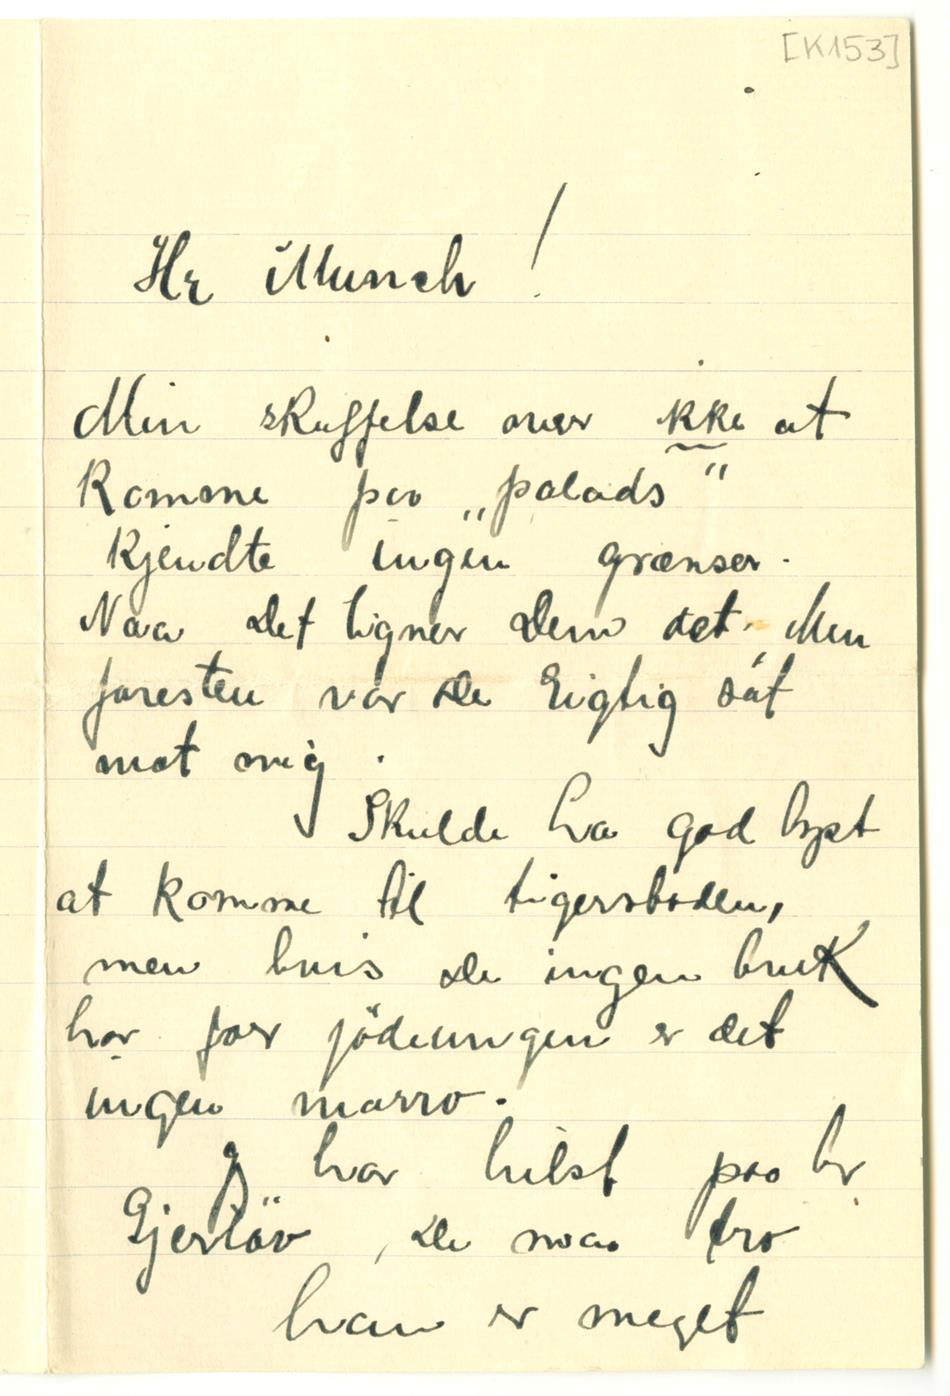 [K153]
Hr Munch!
Min skuffelse over ikke at
komme paa „palads"
kjendte ingen grænser.
Naa Det ligner Dem det. Men
foresten var De rigtig söt
mot mig.
Skulde ha god lyst
at komme til tigerstaden,
men hvis De ingen bruk
har for jödeungen er det
ingen morro.
J har hilst paa hr
Gjerlöv, De maa tro
han er meget